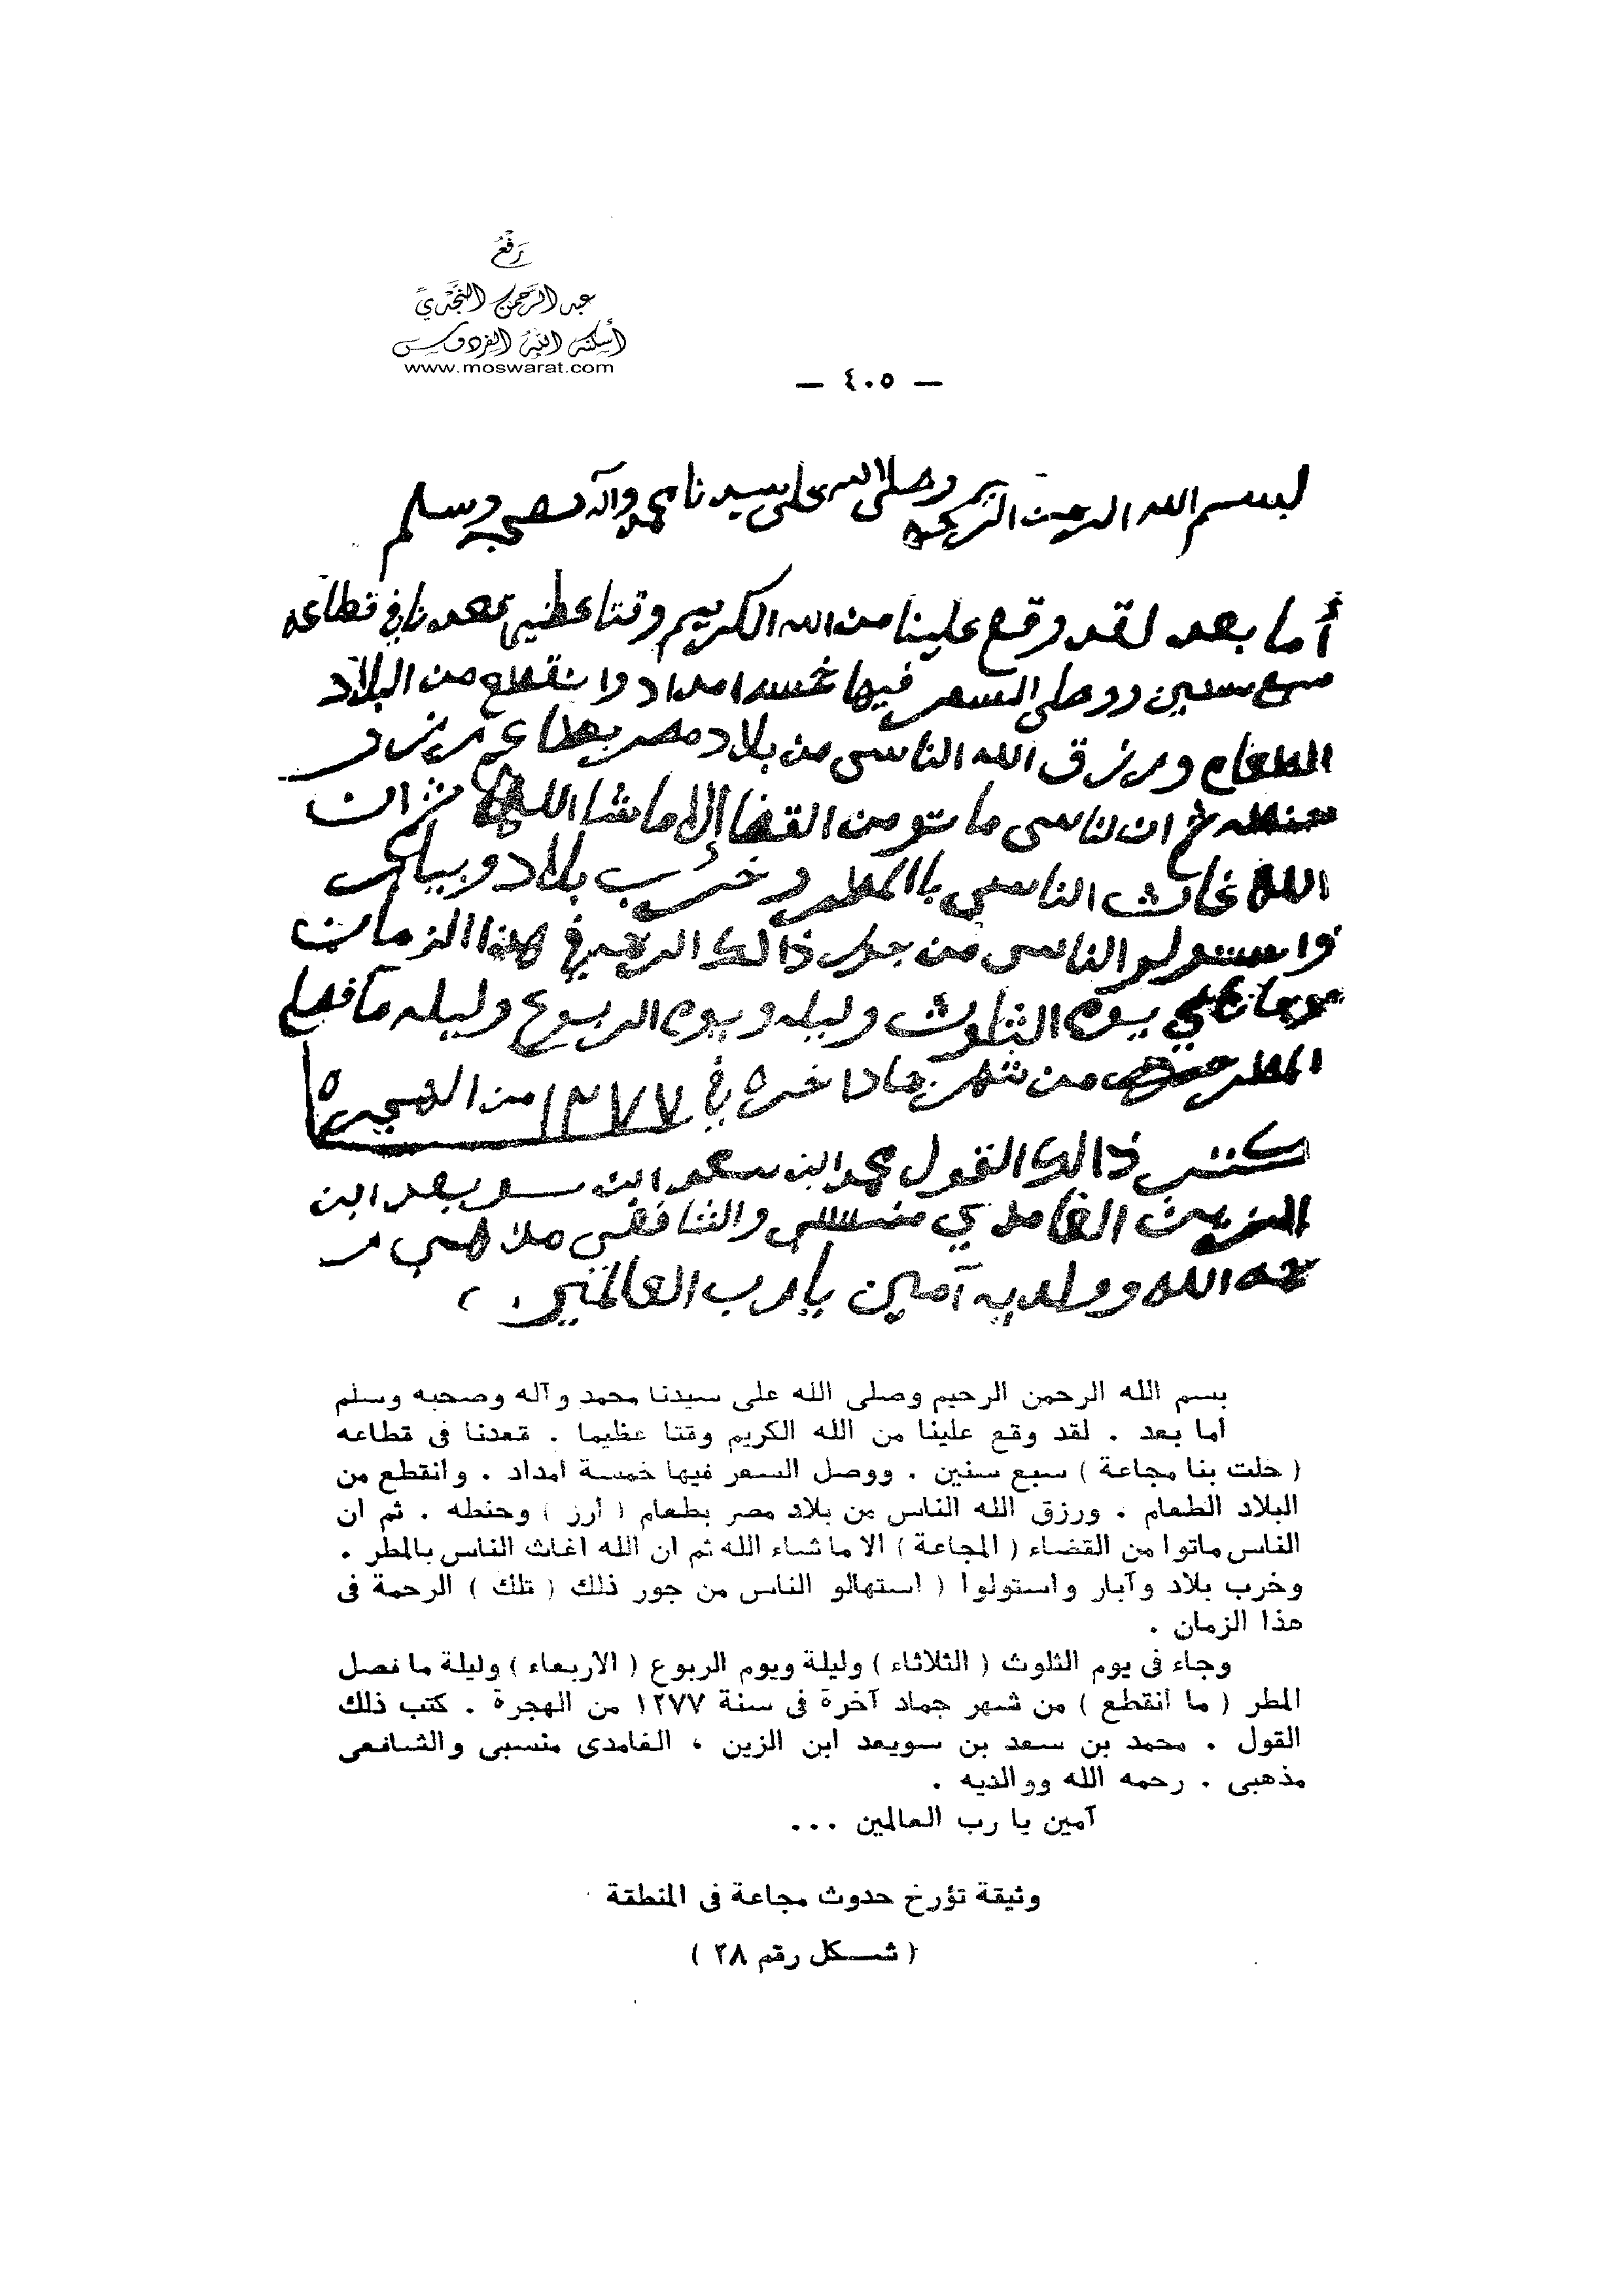 رَفْعُ
عبد الرَّحمن النَّجْدِي
أسكنه الله الفردوس
www.moswarat.com
— ٤٠٥ —
بسم الله الرحمن الرحيم وصلى الله على سيدنا محمد وآله وصحبه وسلم
أما بعد لقد وقع علينا من الله الكريم وقتا عظيم قعدنا في قطاعه
سبع سنين ووصل السعر فيها خمسه امداد وانقطع من البلاد
الطعام ورزق الله الناس من بلاد مصر بطعام رز و
حنطه ثم ان لناس ماتو من القضا إلا ما شا الله ثم ان
الله غاث الناس باالمطر وخرب بلاد وبيار
واستولو الناس من جور ذالك الرحمه في هذا الزمان
يوم الثلوث وليله ويوم الربوع وليله مآفصل
المطر من شهر جمادا خره في ١٢٧٧ من الهجره
كتب ذالك القول محمد ابن سعد ابن سويعد ابن
الزين الغامدي منسبي والشافعي مذهبي ر
حمه الله ووالديه آمين يارب العالمين
بسم الله الرحمن الرحيم وصلى الله على سيدنا محمد وآله وصحبه وسلم
أما بعد . لقد وقع علينا من الله الكريم وقتا عظيما . قعدنا فى قطاعه
( حلت بنا مجاعة ) سبع سنين . ووصل السعر فيها خمسة أمداد . وانقطع من
البلاد الطعام . ورزق الله الناس من بلاد مصر بطعام ( أرز ) وحنطه . ثم ان
الناس ماتوا من القضاء ( المجاعة ) الا ما شاء الله ثم ان الله اغاث الناس بالمطر .
وخرب بلاد وآبار واستولوا ( استهالو الناس من جور ذلك ( تلك ) الرحمة فى
هذا الزمان .
وجاء فى يوم الثلوث ( الثلاثاء ) وليلة ويوم الربوع ( الاربعاء ) وليلة ما فصل
المطر ( ما انقطع ) من شهر جماد آخرة فى سنة ١٢٧٧ من الهجرة . كتب ذلك
القول . محمد بن سعد بن سويعد ابن الزين ، الغامدى منسبى والشافعى
مذهبى . رحمه الله ووالديه .
آمين يا رب العالمين ...
وثيقة تؤرخ حدوث مجاعة فى المنطقة
( شكل رقم ٢٨ )